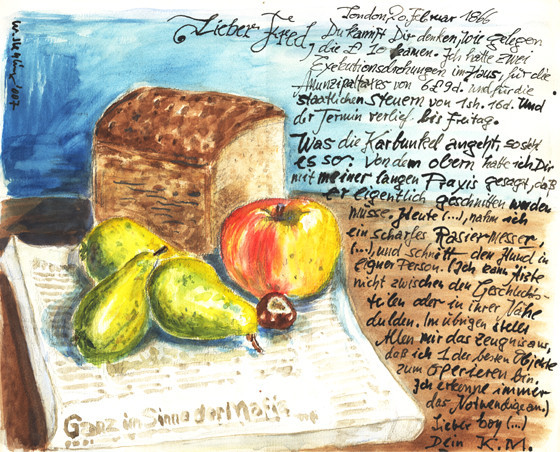 London, 20. Februar 1866
Lieber Fred,
Du kannst Dir denken, wie gelegen
die £ 10 kamen. Ich hatte zwei
Exekutionsdrohungen im Haus, für die
Munizipaltaxes von 6£ 9d. und für die
staatlichen Steuern von 1sh. 16d. Und
der Termin verlief bis Freitag.
Was die Karbunkel angeht, so steht
es so: Von dem obern hatte ich Dir
mit meiner langen Praxis gesagt, daß
er eigentlich geschnitten werden
müsse. Heute (...), nahm ich
ein scharfes Rasiermesser,
(...), und schnitt den Hund in
eigner Person. (Ich kann Ärzte
nicht zwischen den Geschlechts-
teilen oder in ihrer Nähe
dulden. Im übrigen stellen
Allen mir das Zeugnis aus,
daß ich 1 der besten Objekte
zum operieren bin.
Ich erkenne immer
das Notwendige an.)
Lieber boy (...)
Dein K. M.
Ganz im Sinne des